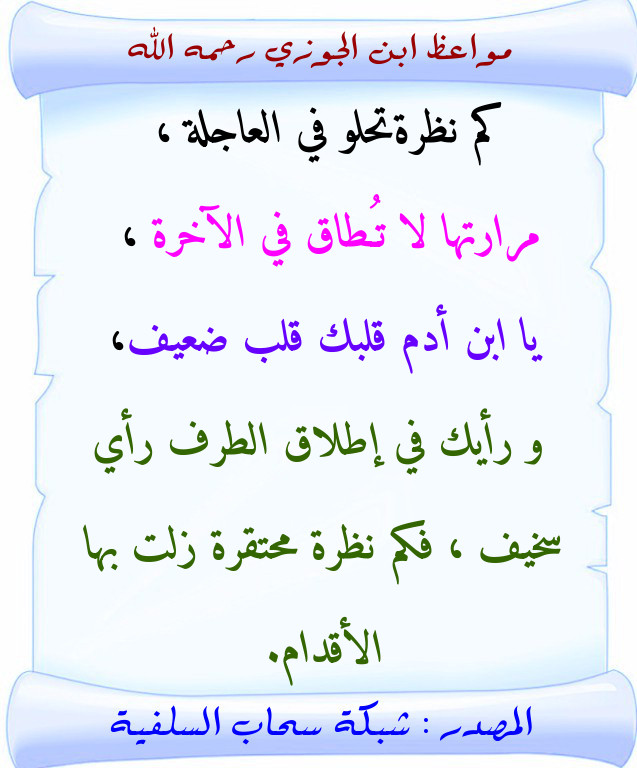 مواعظ ابن الجوزي رحمه الله
كم نظرة تحلو في العاجلة ،
مرارتها لا تُطاق في الآخرة ،
يا ابن أدم قلبك قلب ضعيف،
و رأيك في إطلاق الطرف رأي
سخيف ، فكم نظرة محتقرة زلت بها
الأقدام.
المصدر : شبكة سحاب السلفية